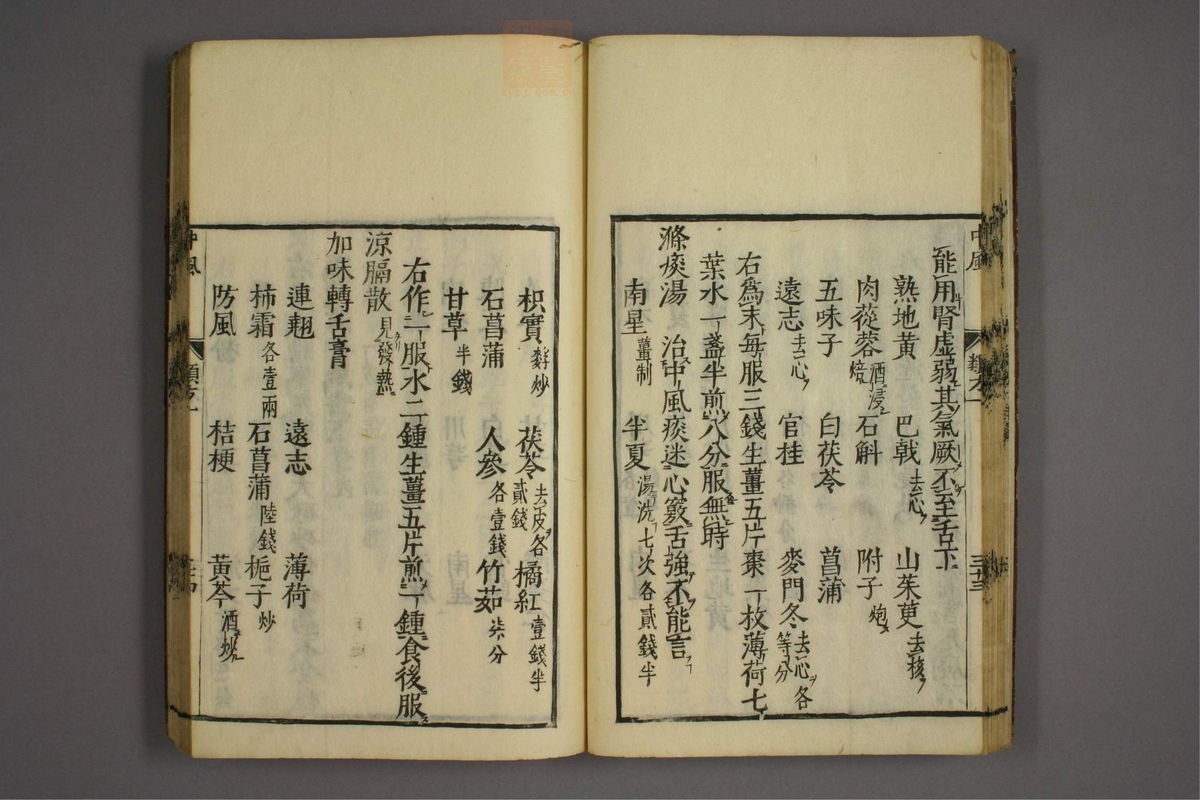 中風
類方一
三十三
能用腎虛弱其氣厥不至舌下
熟地黃 巴戟去心 山茱萸去核
肉蓯蓉酒浸焙 石斛 附子炮
五味子 白茯苓 菖蒲
遠志去心 官桂 麥門冬去心各等分
右爲末每服三錢生薑五片棗一枚薄荷七
葉水一盞半煎八分服無時
滌痰湯 治中風痰迷心竅舌強不能言
南星薑制 半夏湯洗七次各貳錢半
枳實麩炒 茯苓去皮各貳錢 橘紅壹錢半
石菖蒲 人參各壹錢 竹茹柒分
甘草半錢
右作一服水二鍾生薑五片煎一鍾食後服
涼膈散見發熱
加味轉舌膏
連翹 遠志 薄荷
柿霜各壹兩 石菖蒲陸錢 梔子炒
防風 桔梗 黃芩酒炒
中風
類方一
三十四